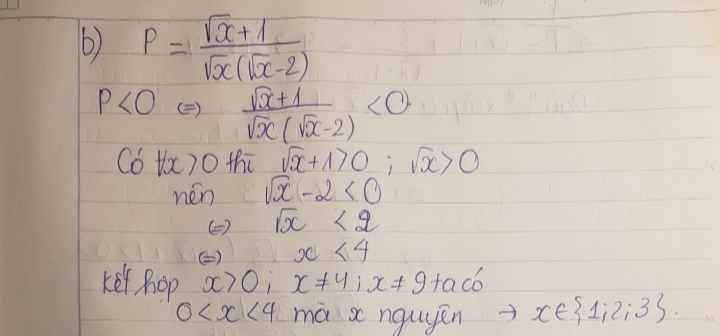 b) P = (√x + 1) / (√x(√x - 2))
P < 0 (=) (√x + 1) / (√x(√x - 2)) < 0
Có ∀x > 0 thì √x + 1 > 0 ; √x > 0
nên √x - 2 < 0
(=) √x < 2
(=) x < 4
kết hợp x > 0 ; x ≠ 4 ; x ≠ 9 ta có
0 < x < 4 mà x nguyên → x ∈ {1; 2; 3}.